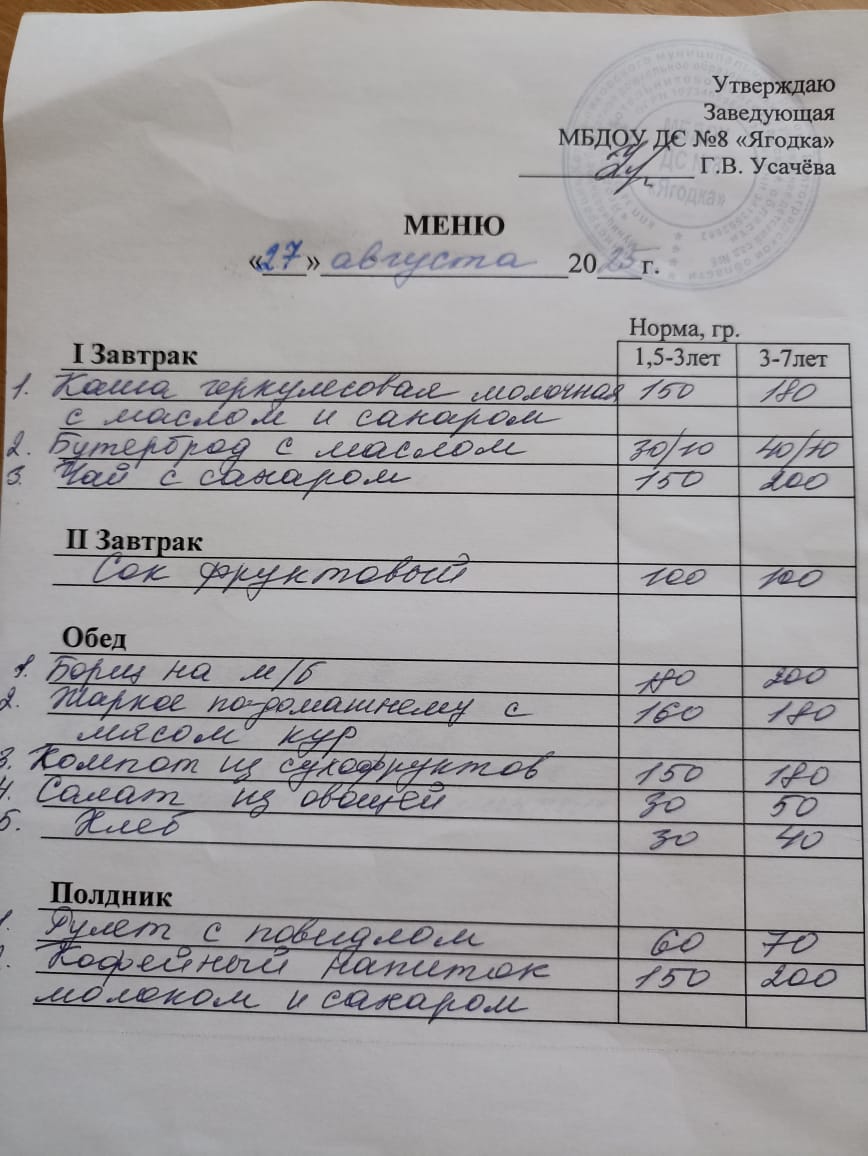 Утверждаю
Заведующая
МБДОУ ДС №8 «Ягодка»
Г.В. Усачёва
МБДОУ
ДС №8
«Ягодка»
МЕНЮ
«27» августа 2025 г.
Норма, гр.
I Завтрак 1,5-3лет 3-7лет
1. Каша геркулесовая молочная 150 180
с маслом и сахаром
2. Бутерброд с маслом 30/10 40/10
3. Чай с сахаром 150 200
II Завтрак
Сок фруктовый 100 100
Обед
1. Борщ на м/б 180 200
2. Жаркое по-домашнему с 160 180
мясом кур
3. Компот из сухофруктов 150 180
4. Салат из овощей 30 50
5. Хлеб 30 40
Полдник
1. Рулет с повидлом 60 70
2. Кофейный напиток 150 200
молоком и сахаром